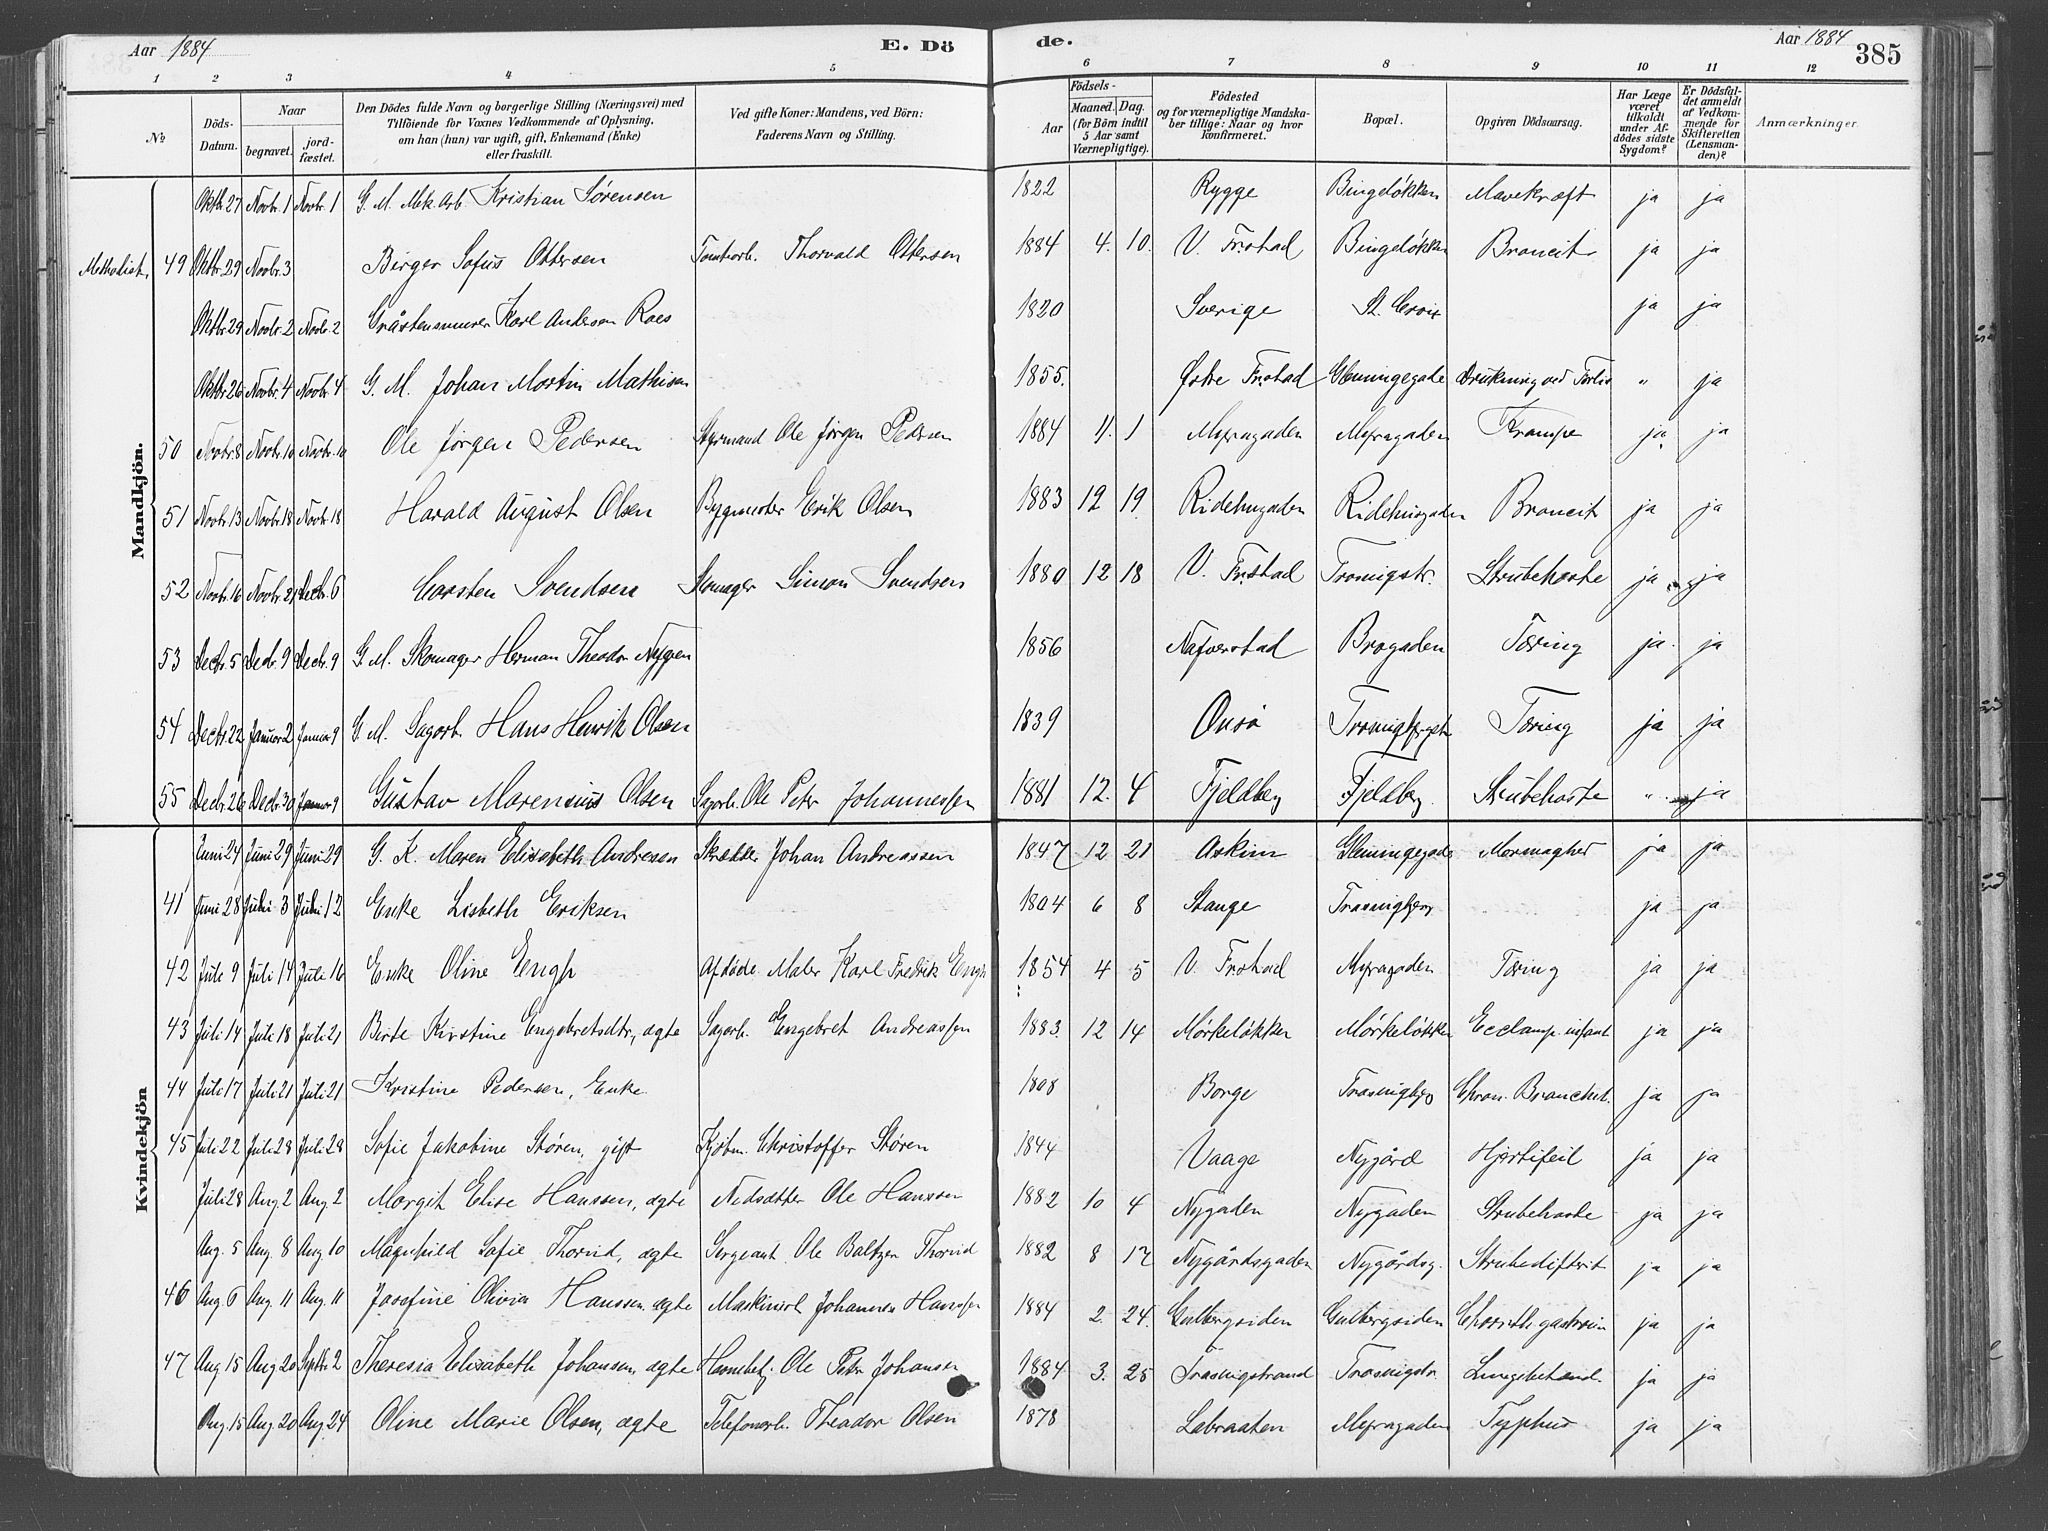 Aar 1884 E. Dö de. Aar 1884 385
1 2 3 4 5 6 7 8 9 10 11 12
№ Döds-Datum. Naar begravet. jord-fæstet. Den Dödes fulde Navn og borgerlige Stilling (Næringsvei) med Tilföiende for Voxnes Vedkommende af Oplysning. om han (hun) var ugift, gift, Enkemand (Enke) eller fraskilt. Ved gifte Koner: Mandens, ved Börn: Faderens Navn og Stilling. Födsels- Aar Maaned. Dag. (for Börn indtil 5 Aar samt Værnepligtige). Födested og for værnepligtige Mandska-ber tillige: Naar og hvor konfirmeret. Bopæl. Opgiven Dödsaarsag. Har Læge været tilkaldt under Af-dödes sidste Sygdom? Er Dödsfal-det anmeldt af Vedkom-mende for Skifteretten (Lensman-den)? Anmærkninger.
Mandkjön.
Oktbr. 27 Novbr. 1 Novbr. 1 G. M. Mek. Arb. Kristian Sørensen 1822 Rygge Bingeløkken Mavekræft ja ja
Methodist. 49 Oktbr. 29 Novbr. 3 Birger Sofus Ottersen Tomtearb. Thorvald Ottersen 1884 4. 10. V. Frstad Bingeløkken Broncit ja ja
Oktbr. 29 Novbr. 2 Novbr. 2 Gråstensmurer Karl Andersen Roes 1820 Sverige St. Croix ja ja
Oktbr. 26 Novbr. 4 Novbr. 4 G. M. Johan Martin Mathisen 1855. Østre Frstad Glemmingegade Drukning ved " ja
50 Novbr. 8 Novbr. 10 Novbr. 10 Ole Jørgen Pedersen Styrmand Ole Jørgen Pedersen 1884 1 Myragaden Myragaden Krampe ja ja
51 Novbr. 13 Novbr. 18 Novbr. 18 Harald August Olsen Bygmester Erik Olsen 1883 12 19 Ridehusgaden Ridehusgaden Broncit ja ja
52 Novbr. 16 Novbr. 21 Decbr. 6 Carsten Svendsen Skomager Simon Svendsen 1880 12 18 V. Frstad Trosvigstr. Strubehoste ja ja
53 Decbr. 5 Decbr. 9 Decbr. 9 G. M. Skomager Herman Theodor Nygren 1856 Nafverstad Brogaden Tæring ja ja
54 Decbr. 22 Januar 2 Januar 9 G. M. Sagarb. Hans Henrik Olsen 1839 Onsø Tæring ja ja
55 Decbr. 26 Decbr. 30 Januar 9 Gustav Marensius Olsen Sagarb. Ole Peter Johannessen 1881 12. 4 Fjeldberg Fjeldberg. Strubehoste " ja
Kvindekjön
Juni 24 Juni 29 Juni 29 G. K. Maren Elisabeth Andresen Skrædder Johan Andreassen 1847 12 21 Askim Glemmingegade ja ja
41 Juni 28 Juli 3 Juli 12 Enke Lisbeth Eriksen 1804 6 8 Stange Trosvigberg ja ja
42 Jule 9 Juli 14 Juli 16 Enke Oline Engh Afdøde Maler Karl Fredrik Engh 1854 4 5 V. Frstad Myragaden Tæring ja ja
43 Juli 14 Juli 18 Juli 21 Birte Kirstine Engebretsdtr, ægte Sagarb. Engebret Andreassen 1883. 12 14 Mørkeløkken Mørkeløkken Ecclamp. infant ja ja
44 Juli 17 Juli 21 Juli 21 Kristine Pedersen, Enke. 1808 Borge Trosvigberg Chron. Bronchit. ja ja
45 Juli 22 Juli 28 Juli 28 Sofie Jakobine Støren, gift Kjøbm. Christoffer Støren 1844 Vaage Nygård Hjertefeil ja ja
Juli 28 Aug. 2 Aug. 2 Margit Elise Hanssen, ægte Ole Hanssen 1882 10 4 Nygaden Nygaden Strubehoste ja ja
Aug. 5 Aug. 8 Aug. 10 Magnhild Sofie Thorvid, ægte Sergeant Ole Baltzer Thorvid 1882 8 17 Nygårdsgaden Nygårdsg. Strubedifterit ja ja
46 Aug. 6 Aug. 11 Aug. 11 Josefine Olivia Hanssen, ægte Maskinist Johannes Hanssen 1884 2. 24. Gulbergsiden Gulbergsiden ja ja
47 Aug. 15 Aug. 20 Septbr. 2 Theresia Elisabeth Johansen, ægte Ole Peter Johansen 1884 3. 25 Trosvigstrand Trosvigstr. Lungebetænd. ja ja
Aug. 15 Aug. 20 Aug. 24 Oline Marie Olsen, ægte Telefonarb. Theodor Olsen 1878 Labraaten Myragaden Typhus ja ja